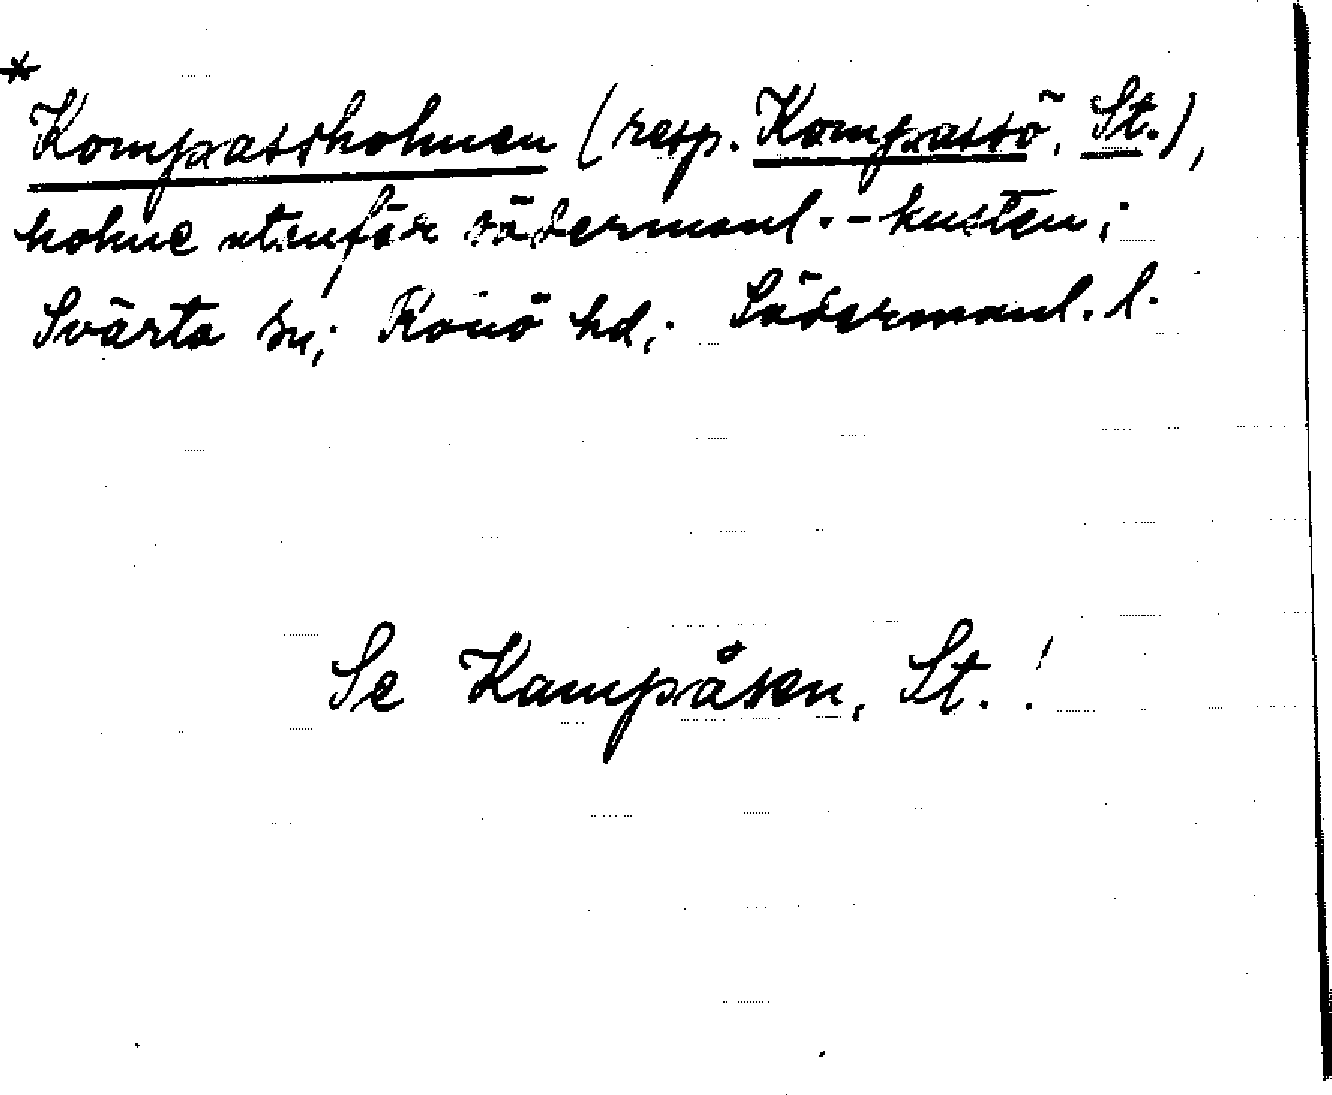 *
Kompassholmen (resp. Kompassö, St.),
holme utanför södermanl.-kusten;
Svärta sn; Rönö hd; Södermanl. l.
Se Kampåsen, St.!